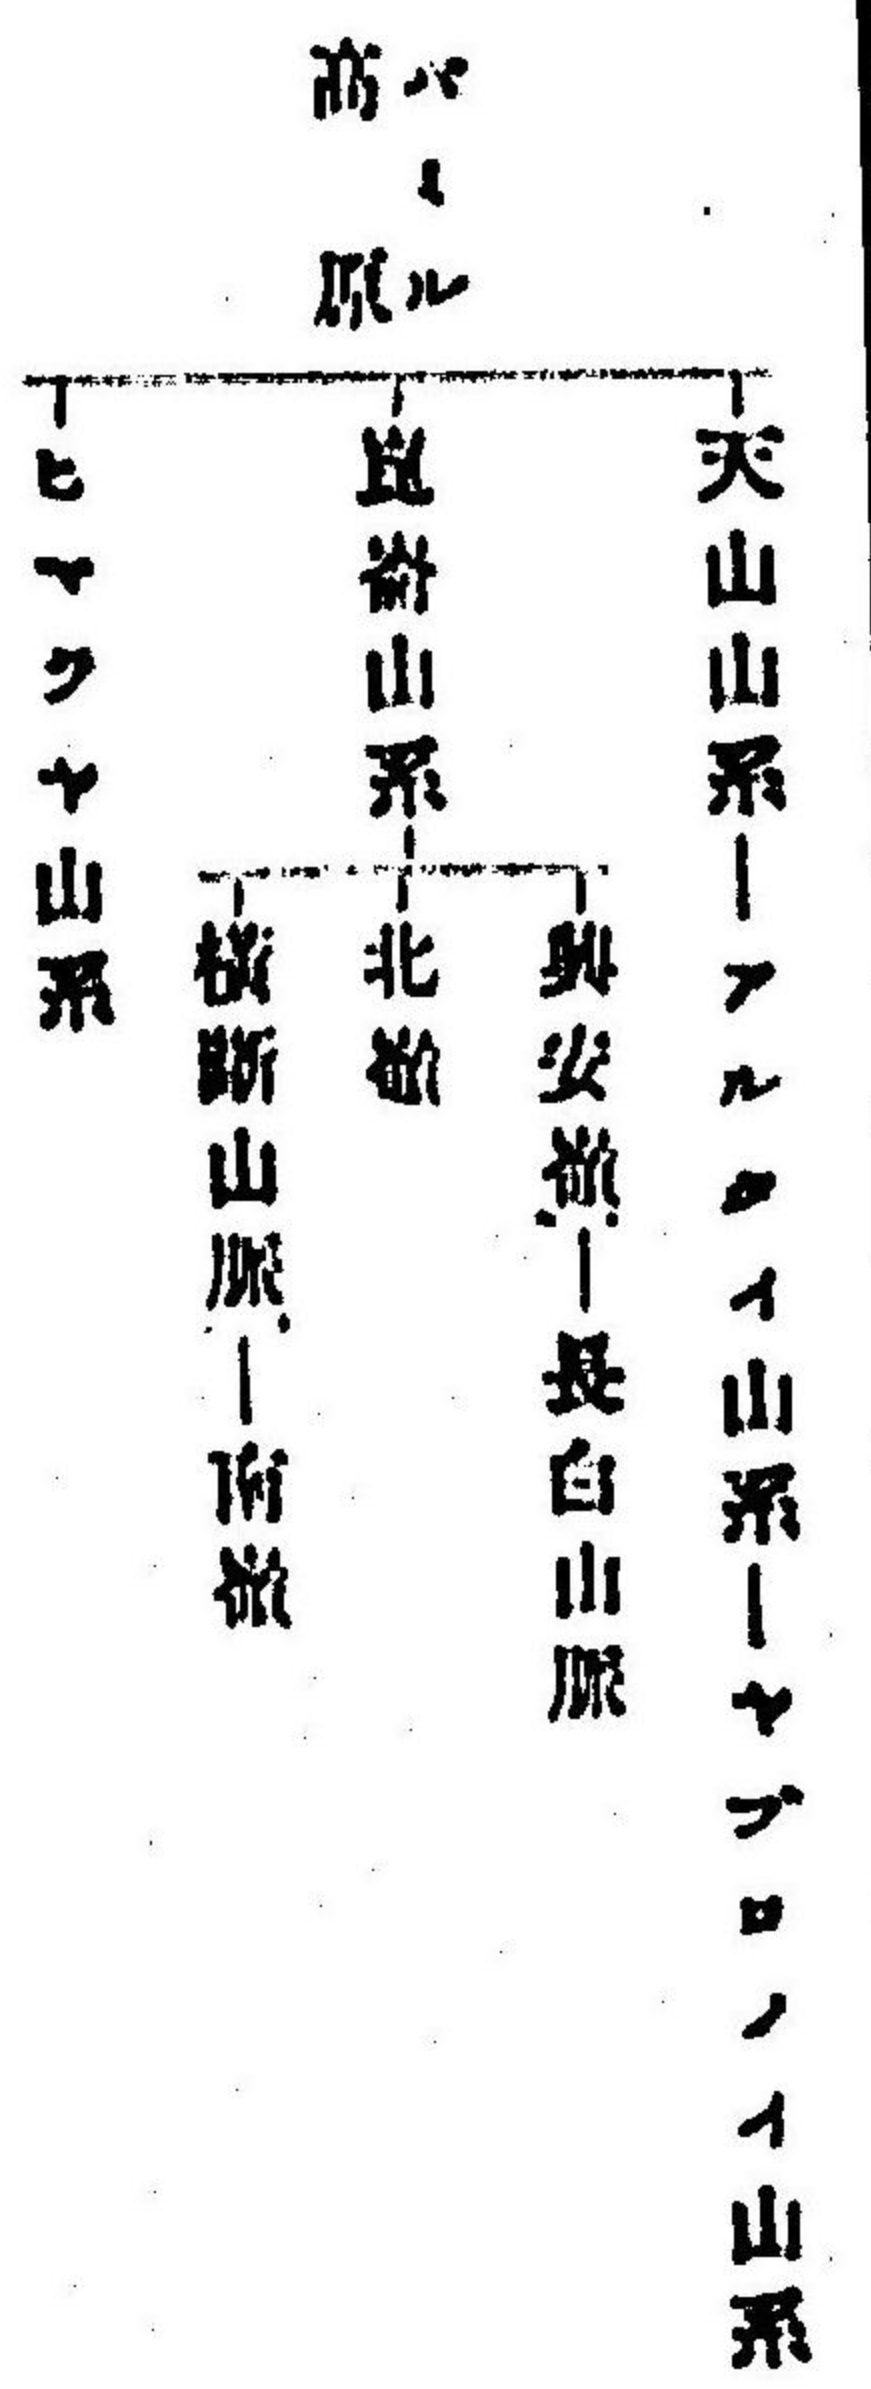 パミル
高原
天山山系―アルタイ山系―ヤブロノイ山系
崑崙山系
興安嶺―長白山脈
北嶺
横断山脈―南嶺
ヒマラヤ山系